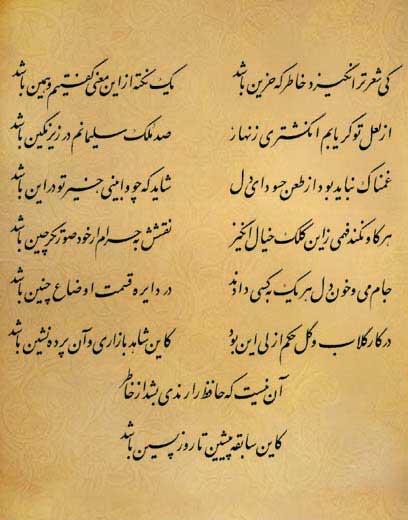 کی شعر تر انگیزد خاطر که حزین باشد یک نکته از این معنی گفتیم و همین باشد
از لعل تو گر یابم انگشتری زنهار صد ملک سلیمانم در زیر نگین باشد
غمناک نباید بود از طعن حسود ای دل شاید که چو وابینی خیر تو در این باشد
هر کاو نکند فهمی زاین کلک خیال انگیز نقشش به حرام ار خود صورتگر چین باشد
جام می و خون دل هر یک به کسی دادند در دایره قسمت اوضاع چنین باشد
در کار گلاب و گل حکم ازلی این بود کاین شاهد بازاری وآن پرده نشین باشد
آن نیست که حافظ را رندی بشد از خاطر
کاین سابقه پیشین تا روز پسین باشد